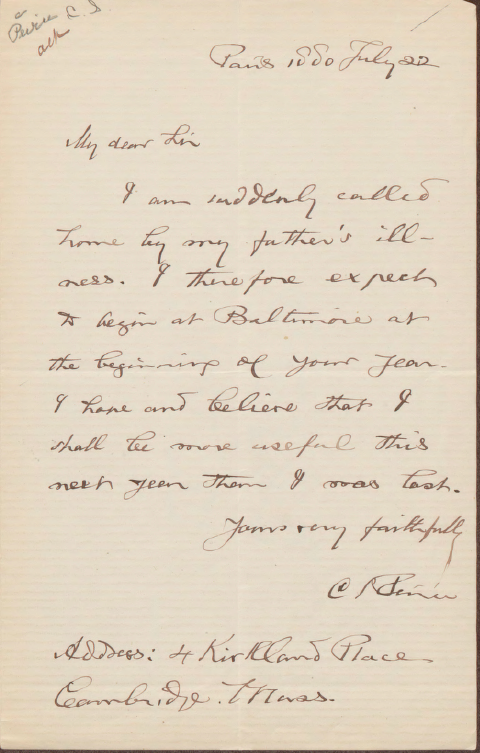 Peirce C. S.
ack
Paris 1880 July 22
My dear Sir
I am suddenly called
home by my father's ill-
ness. I therefore expect
to begin at Baltimore at
the beginning of your year.
I hope and believe that I
shall be more useful this
next year than I was last.
Yours very faithfully
C S Peirce
Address: 4 Kirkland Place
Cambridge. Mass.